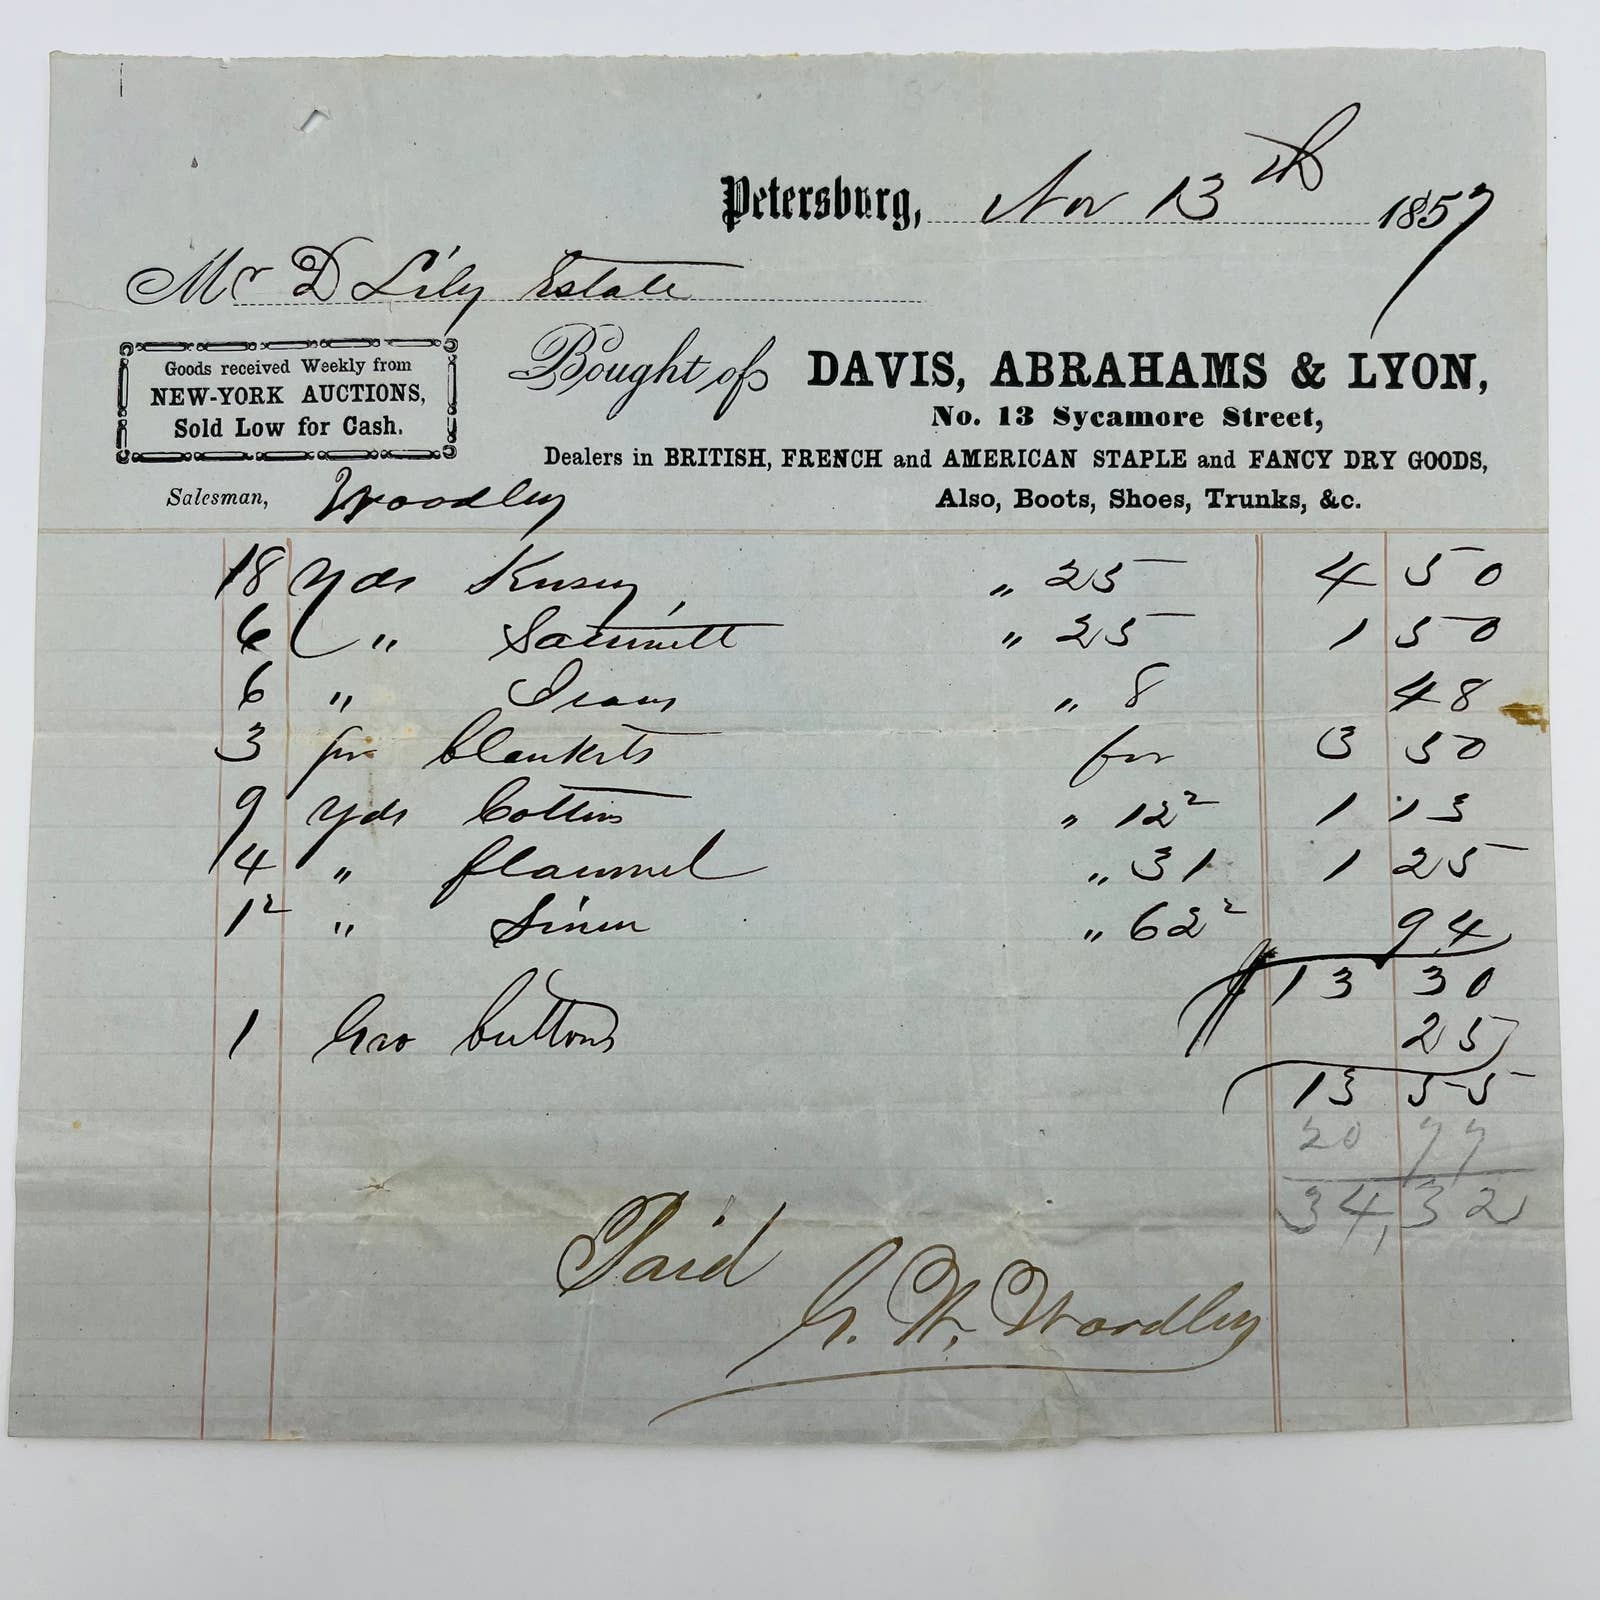 Petersburg, Nov 13th 1857
Mr D Lily Estate
Goods received Weekly from
NEW-YORK AUCTIONS,
Sold Low for Cash.
Bought of DAVIS, ABRAHAMS & LYON,
No. 13 Sycamore Street,
Dealers in BRITISH, FRENCH and AMERICAN STAPLE and FANCY DRY GOODS,
Also, Boots, Shoes, Trunks, &c.
Salesman, Woodley
18 yds Kersey, " 25 4 50
6 " Sattinett " 25 1 50
6 " " 8 48
3 pr blankets for 3 50
9 yds Cotton " 12² 1 13
4 " flannel " 31 1 25
1² " Linen " 62² 94
13 30
1 Gro buttons 25
13 55
20 77
34,32
Paid
G. W. Woodley